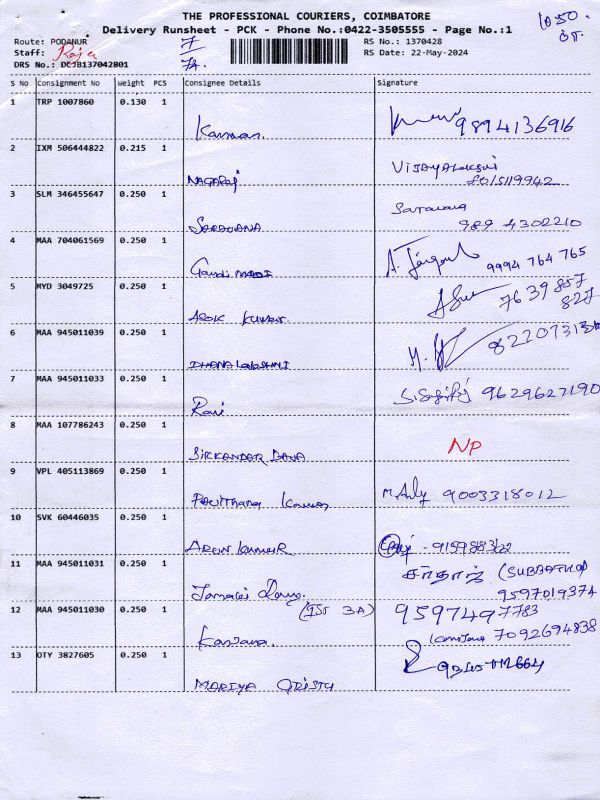 THE PROFESSIONAL COURIERS, COIMBATORE
Delivery Runsheet - PCK - Phone No.:0422-3505555 - Page No.:1
Route: PODANUR RS No.: 1370428
Staff: Raja RS Date: 22-May-2024
DRS No.: DCJB137042801
S No Consignment No Weight PCS Consignee Details Signature
1 TRP 1007860 0.130 1
Kannan. 9894136916
2 IXM 506444822 0.215 1
NAGARAJ VIJAYALAKSMI
8015119942
3 SLM 346455647 0.250 1
SARAVANA Saravana
989 4302210
4 MAA 704061569 0.250 1
Gandimadi 9994 764 765
5 MYD 3049725 0.250 1
ASOK KUMAR 7639 857
827
6 MAA 945011039 0.250 1
DHANALAKSHMI
7 MAA 945011033 0.250 1
Ravi 9629627190
8 MAA 107786243 0.250 1
SIKKANDAR BAVA NP
9 VPL 405113869 0.250 1
9003318012
10 SVK 60446035 0.250 1
ARUN KUMAR
11 MAA 945011031 0.250 1
9597019374
12 MAA 945011030 0.250 1
9597497783
7092694838
13 OTY 3827605 0.250 1
MARIYA